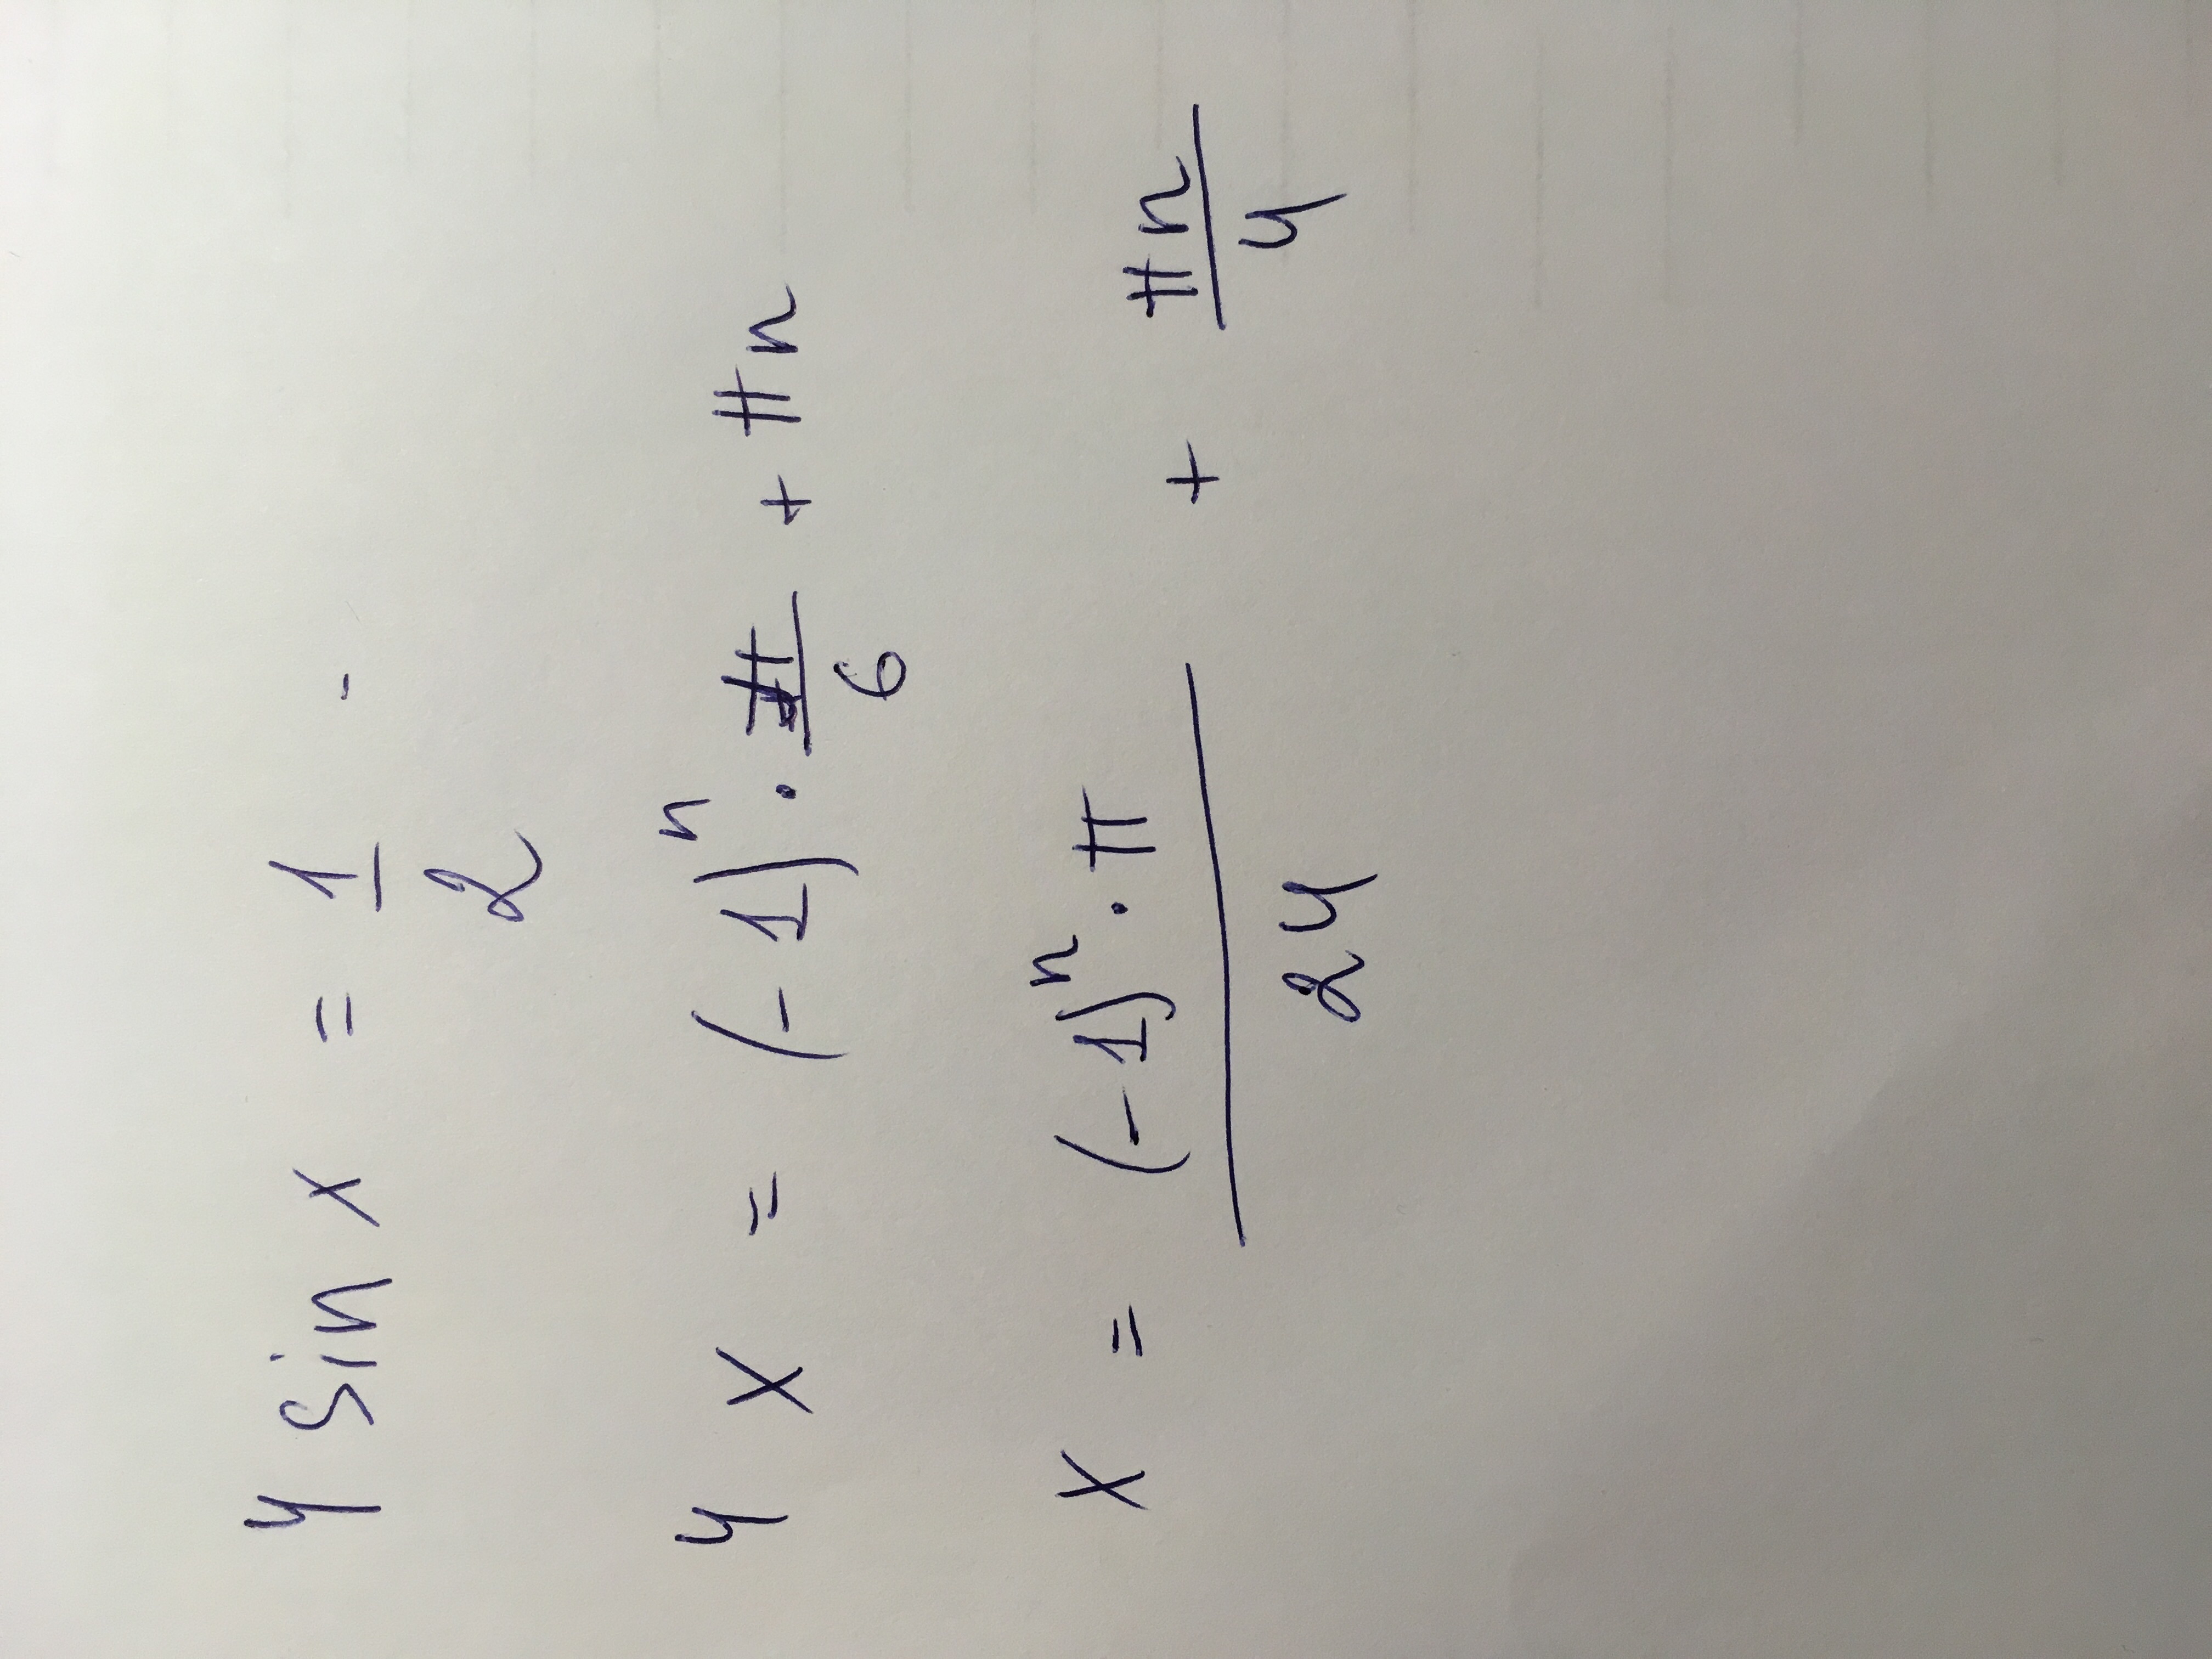 4 sin x = 1/2
4 x = (-1)^n · π/6 + πn
x = (-1)^n · π / 24 + πn/4